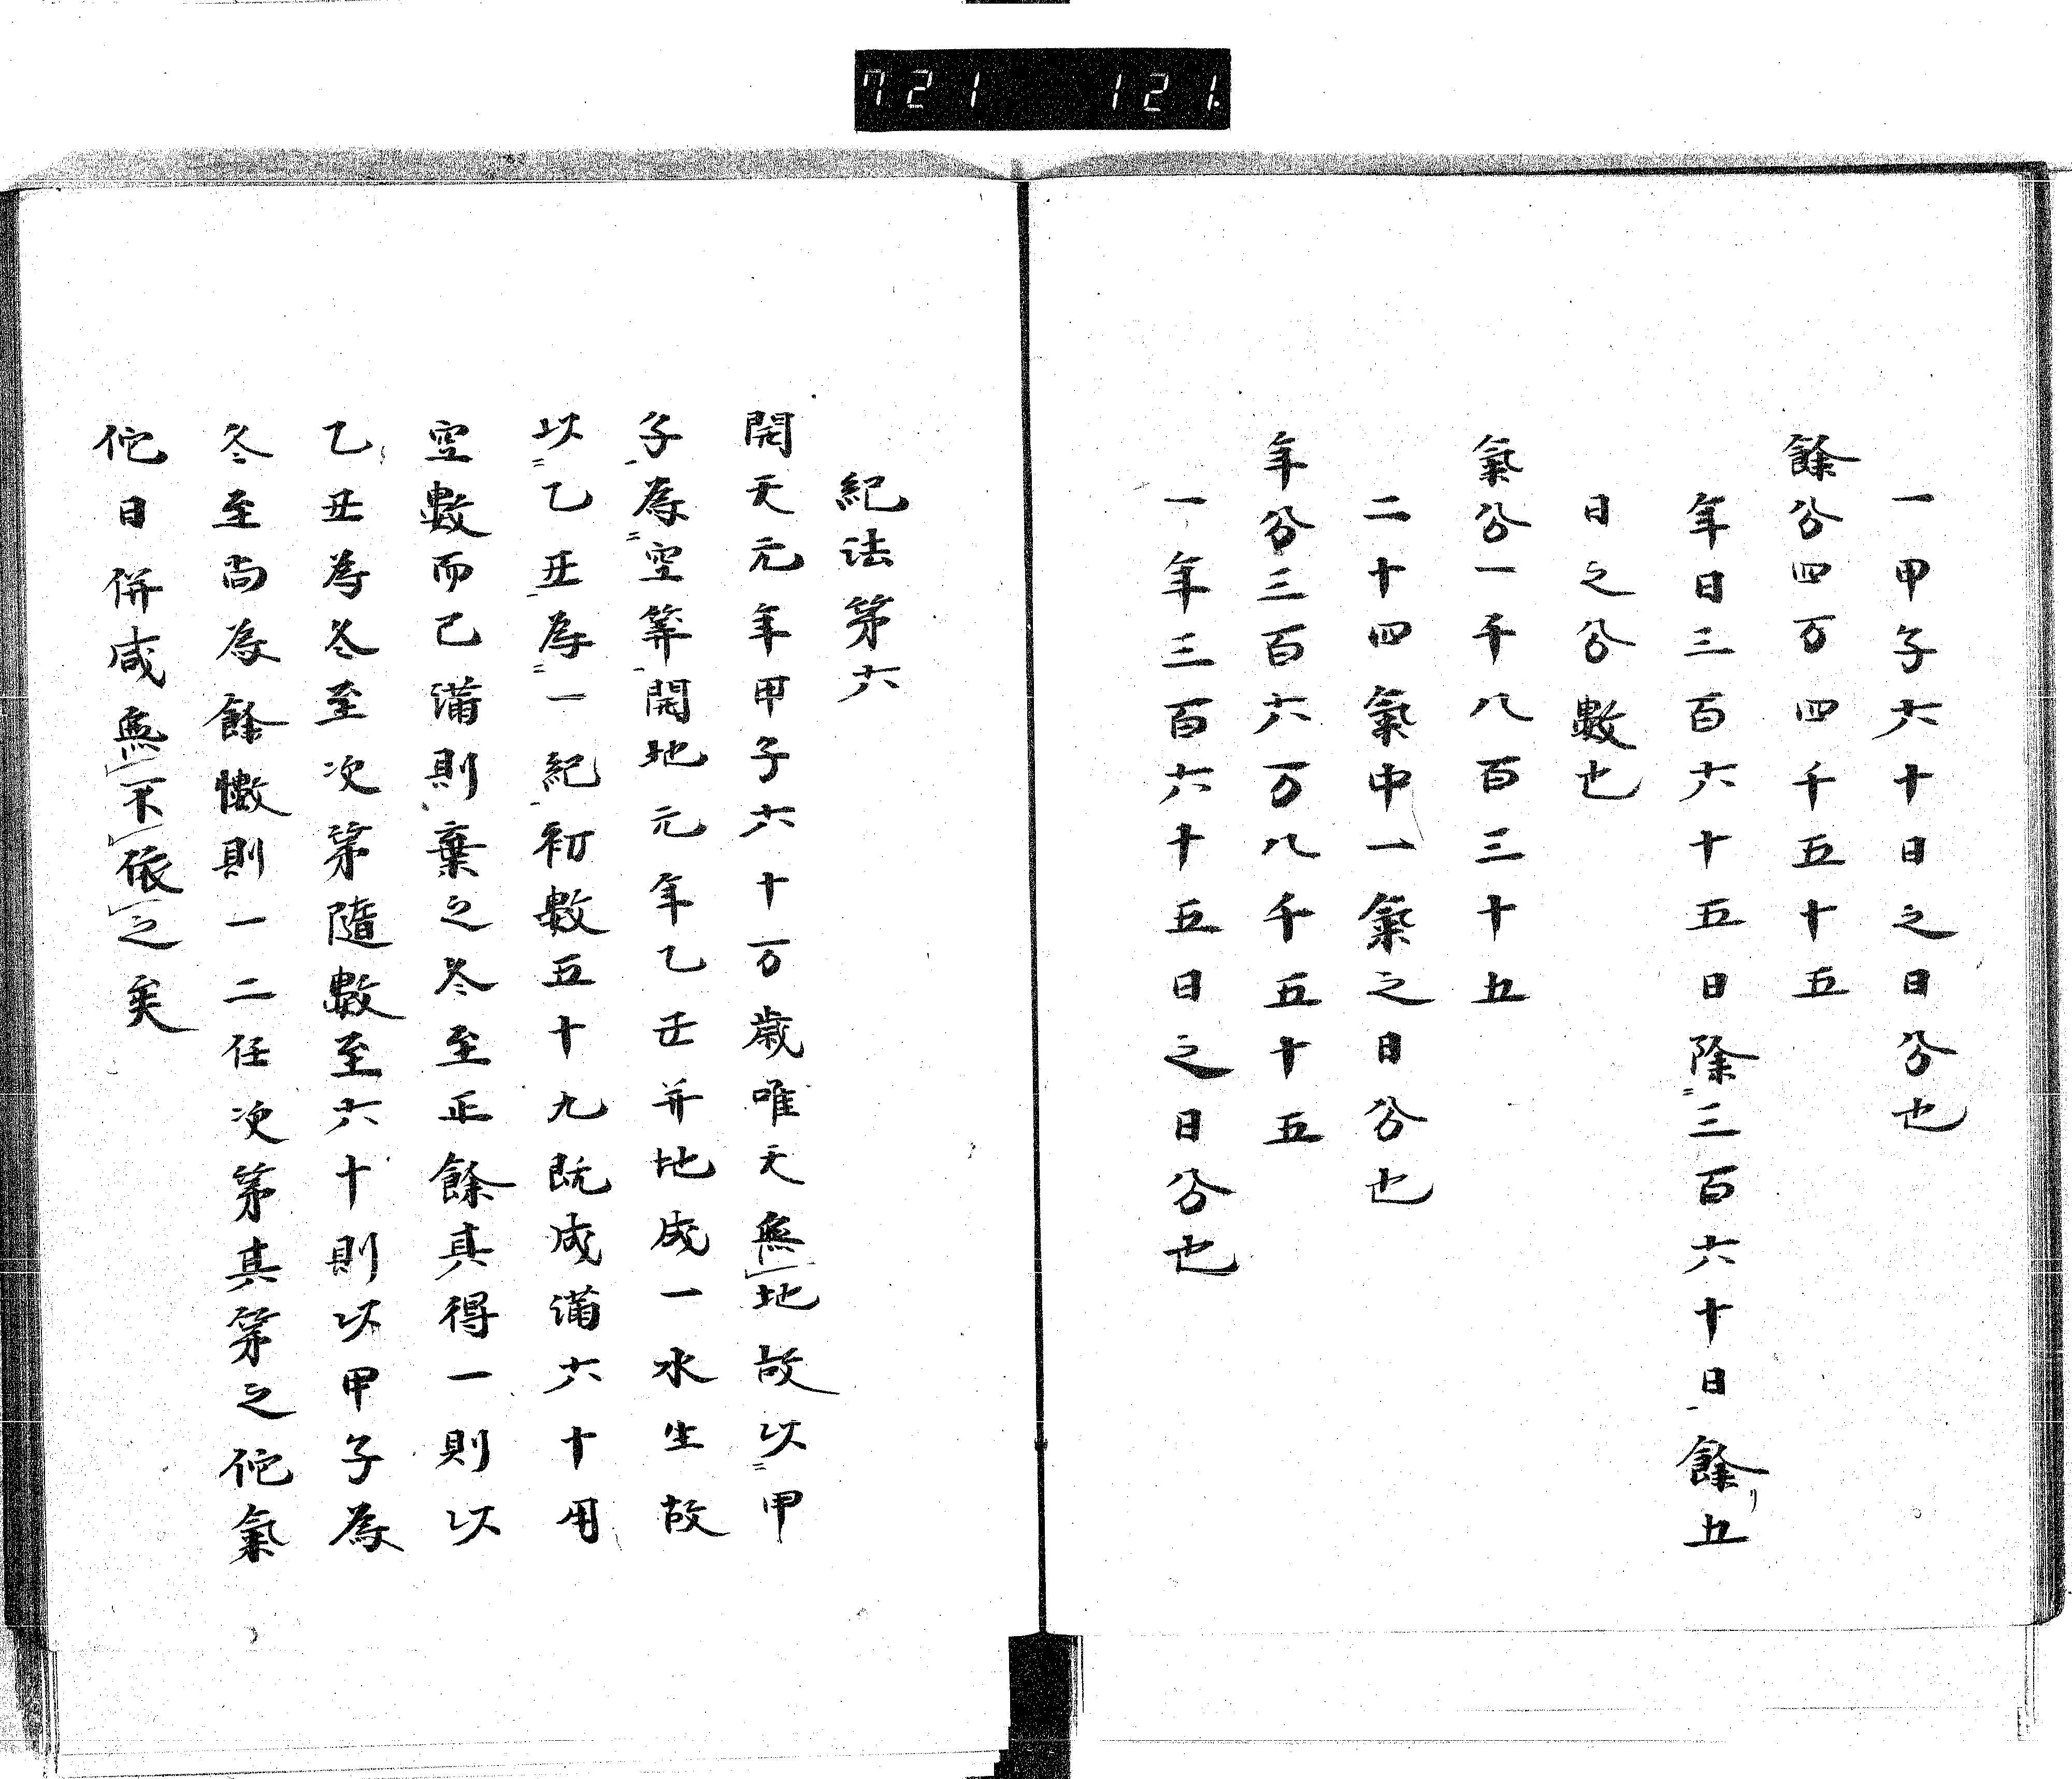 721 121.
一甲子六十日之日分也
餘分四万四千五十五
年日三百六十五日除三百六十日餘五
日之分數也
氣分一千八百三十五
二十四氣中一氣之日分也
年分三百六万八千五十五
一年三百六十五日之日分也
紀法第六
開天元年甲子六十万歲唯天無地故以甲
子為空筭開地元年乙丑并地成一水生故
以乙丑為一紀初數五十九既成滿六十用
空數而已滿則棄之冬至正餘真得一則以
乙丑為冬至次第隨數至六十則以甲子為
冬至尚為餘懒則一二任次第其第之佗氣
佗日併咸無不依之矣